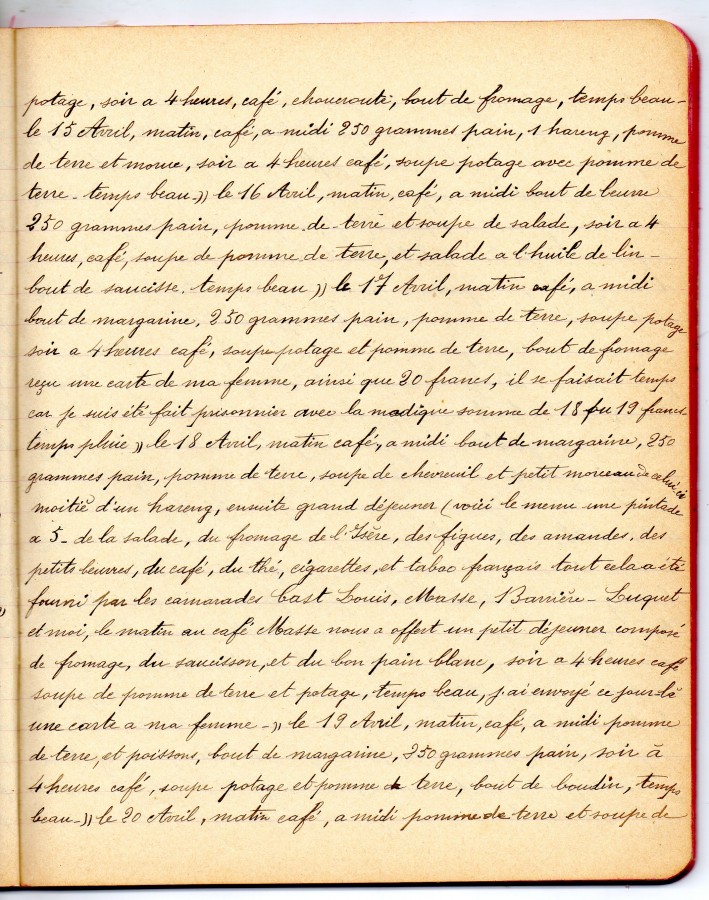 potage, soir a 4 heures, café, choucroute, bout de fromage, temps beau-
le 15 Avril, matin, café, a midi 250 grammes pain, 1 hareng, pomme
de terre et morue, soir a 4 heures café, soupe potage avec pomme de
terre - temps beau -)) le 16 Avril, matin, café, a midi bout de beurre
250 grammes pain, pomme de terre et soupe de salade, soir a 4
heures, café, soupe de pomme de terre, et salade a l'huile de lin -
bout de saucisse. temps beau )) le 17 Avril, matin café, a midi
bout de margarine, 250 grammes pain, pomme de terre, soupe potage
soir a 4 heures café, soupe potage et pomme de terre, bout de fromage
reçu une carte de ma femme, ainsi que 20 francs, il se faisait temps
car je suis été fait prisonnier avec la modique somme de 18 ou 19 francs
temps pluie )) le 18 Avril, matin café, a midi bout de margarine, 250
grammes pain, pomme de terre, soupe de chevreuil et petit morceau de celui ci
moitié d'un hareng, ensuite grand déjeuner (voici le menu une pintade
a 5 - de la salade, du fromage de l'Isère, des figues, des amandes, des
petits beurres, du café, du thé, cigarettes, et tabac français tout cela a été
fourni par les camarades Cast Louis, Masse, Barrière - Luquet
et moi, le matin au café Masse nous a offert un petit déjeuner composé
de fromage, du saucisson, et du bon pain blanc, soir a 4 heures café
soupe de pomme de terre et potage, temps beau, j'ai envoyé ce jour là
une carte a ma femme -)) le 19 Avril, matin, café, a midi pomme
de terre, et poissons, bout de margarine, 250 grammes pain, soir à
4 heures café, soupe potage et pomme de terre, bout de boudin, temps
beau -)) le 20 Avril, matin café, a midi pomme de terre et soupe de